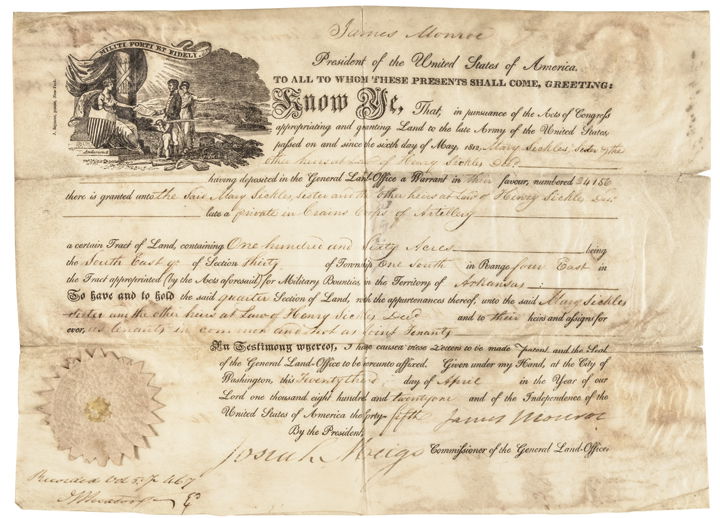 James Monroe
MILITI FORTI ET FIDELI
President of the United States of America.
TO ALL TO WHOM THESE PRESENTS SHALL COME, GREETING:
Know Ye, That, in pursuance of the Acts of Congress
appropriating and granting Land to the late Army of the United States,
passed on and since the sixth day of May, 1812, Mary Sickles, sister & the
other heirs at Law of Henry Sickles Decd
having deposited in the General Land-Office a Warrant in their favour, numbered 24156
there is granted unto the said Mary Sickles, sister and the other heirs at Law of Henry Sickles Decd
late a private in Crains Corps of Artillery
a certain Tract of Land, containing One hundred and Sixty Acres being
the South East qr of Section thirty of Township One South in Range four East in
the Tract appropriated (by the Acts aforesaid) for Military Bounties, in the Territory of Arkansas:
To have and to hold the said quarter Section of Land, with the appurtenances thereof, unto the said Mary Sickles
sister and the other heirs at Law of Henry Sickles Decd and to their heirs and assigns for
ever, as tenants in common and not as Joint Tenants
In Testimony whereof, I have caused these Letters to be made Patent, and the Seal
of the General Land-Office to be hereunto affixed. Given under my Hand, at the City of
Washington, this day of April in the Year of our
Lord one thousand eight hundred and twenty one and of the Independence of the
United States of America the forty-fifth James Monroe
By the President,
Josiah Meigs Commissioner of the General Land-Office
Recorded Vol 467